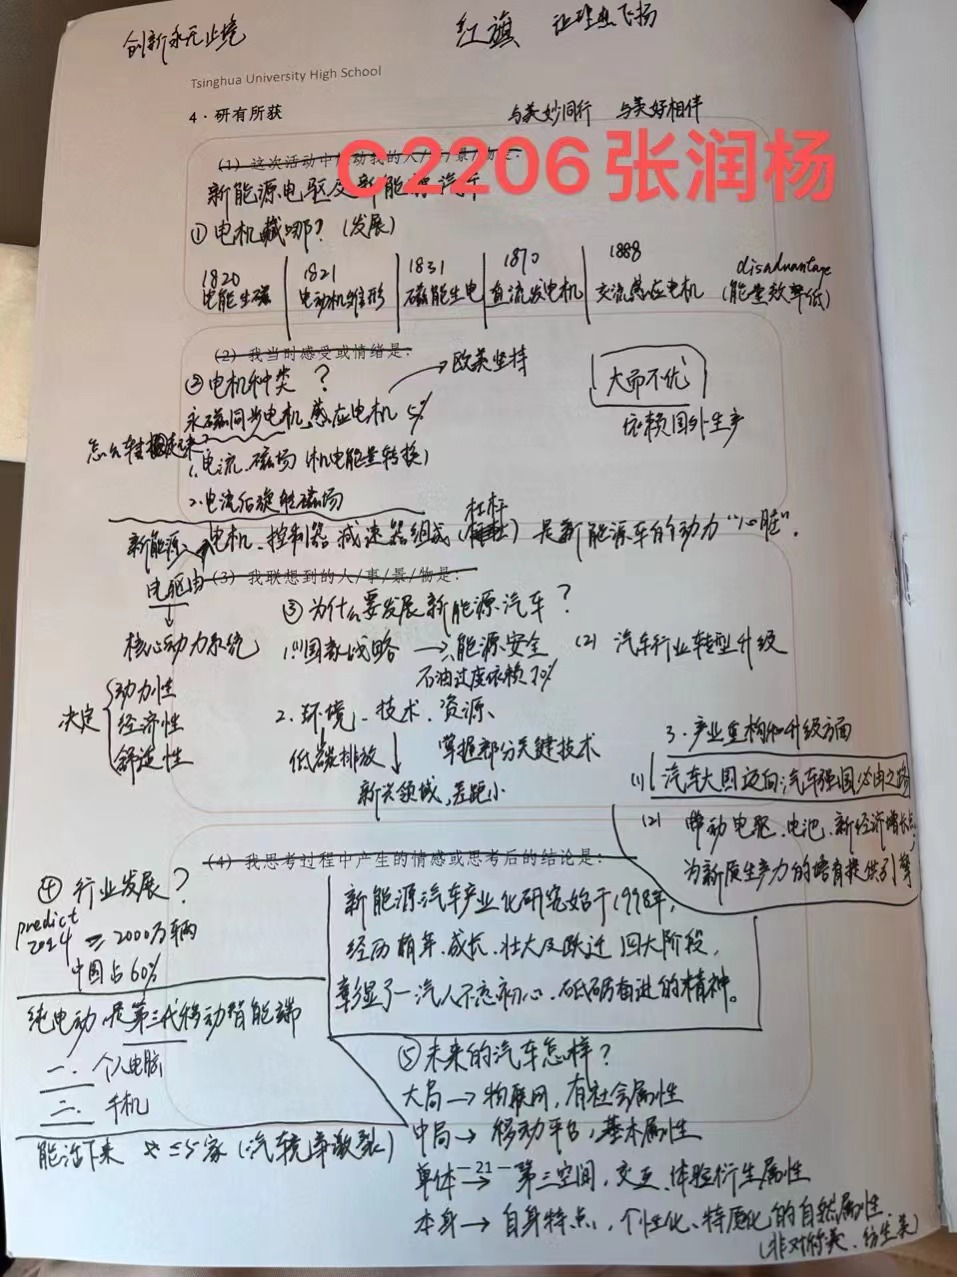 创新永无止境
红旗 让理想飞扬
Tsinghua University High School
4·研有所获
与美妙同行 与美好相伴
(1) 这次活动中 动我的人/ /景/物是:
C2206张润杨
新能源电驱及新能源汽车
① 电机藏哪? (发展)
1820 电能生磁
1821 电动机雏形
1831 磁能生电
1870 直流发电机
1888 交流感应电机
disadvantage (能量效率低)
(2) 我当时感受或情绪是:
② 电机种类 ?
→欧美坚持
大而不优
依赖国外生产
永磁同步电机,感应电机 5%
怎么转起来?
1.电流、磁场 (机电能量转换)
2.电流后旋转磁场
新能源 电驱由
电机、控制器 减速器组成 (杠杆) 是新能源车的动力“心脏”.
(3) 我联想到的人/事/景/物是:
↓
核心动力系统
决定
动力性
经济性
舒适性
③ 为什么要发展新能源汽车?
1.(1)国家战略 → 能源安全 (2) 汽车行业转型升级
石油过度依赖 70%
2.环境、技术、资源、
低碳排放 ↓ 掌握部分关键技术
新兴领域,差距小
3.产业重构和升级方面
(1) 汽车大国迈向汽车强国必由之路
(2) 带动电驱、电池、新经济增长点,
为新质生产力的培育提供引擎
(4) 我思考过程中产生的情感或思考后的结论是:
④ 行业发展?
predict
2024 ≥2000万辆
中国占60%
新能源汽车产业化研究始于1998年,
经历萌芽、成长、壮大及跃迁 四大阶段,
彰显了一汽人不忘初心、砥砺奋进的精神。
纯电动是第三代移动智能端
一.个人电脑
二.手机
能活下来 ≤5家 (汽车竞争激烈)
⑤ 未来的汽车怎样?
大局→物联网,有社会属性
中局→移动平台,基本属性
单体→第三空间,交互、体验衍生属性
-21-
本身→自身特点,个性化、特质化的自然属性.
(非对称美、仿生美)